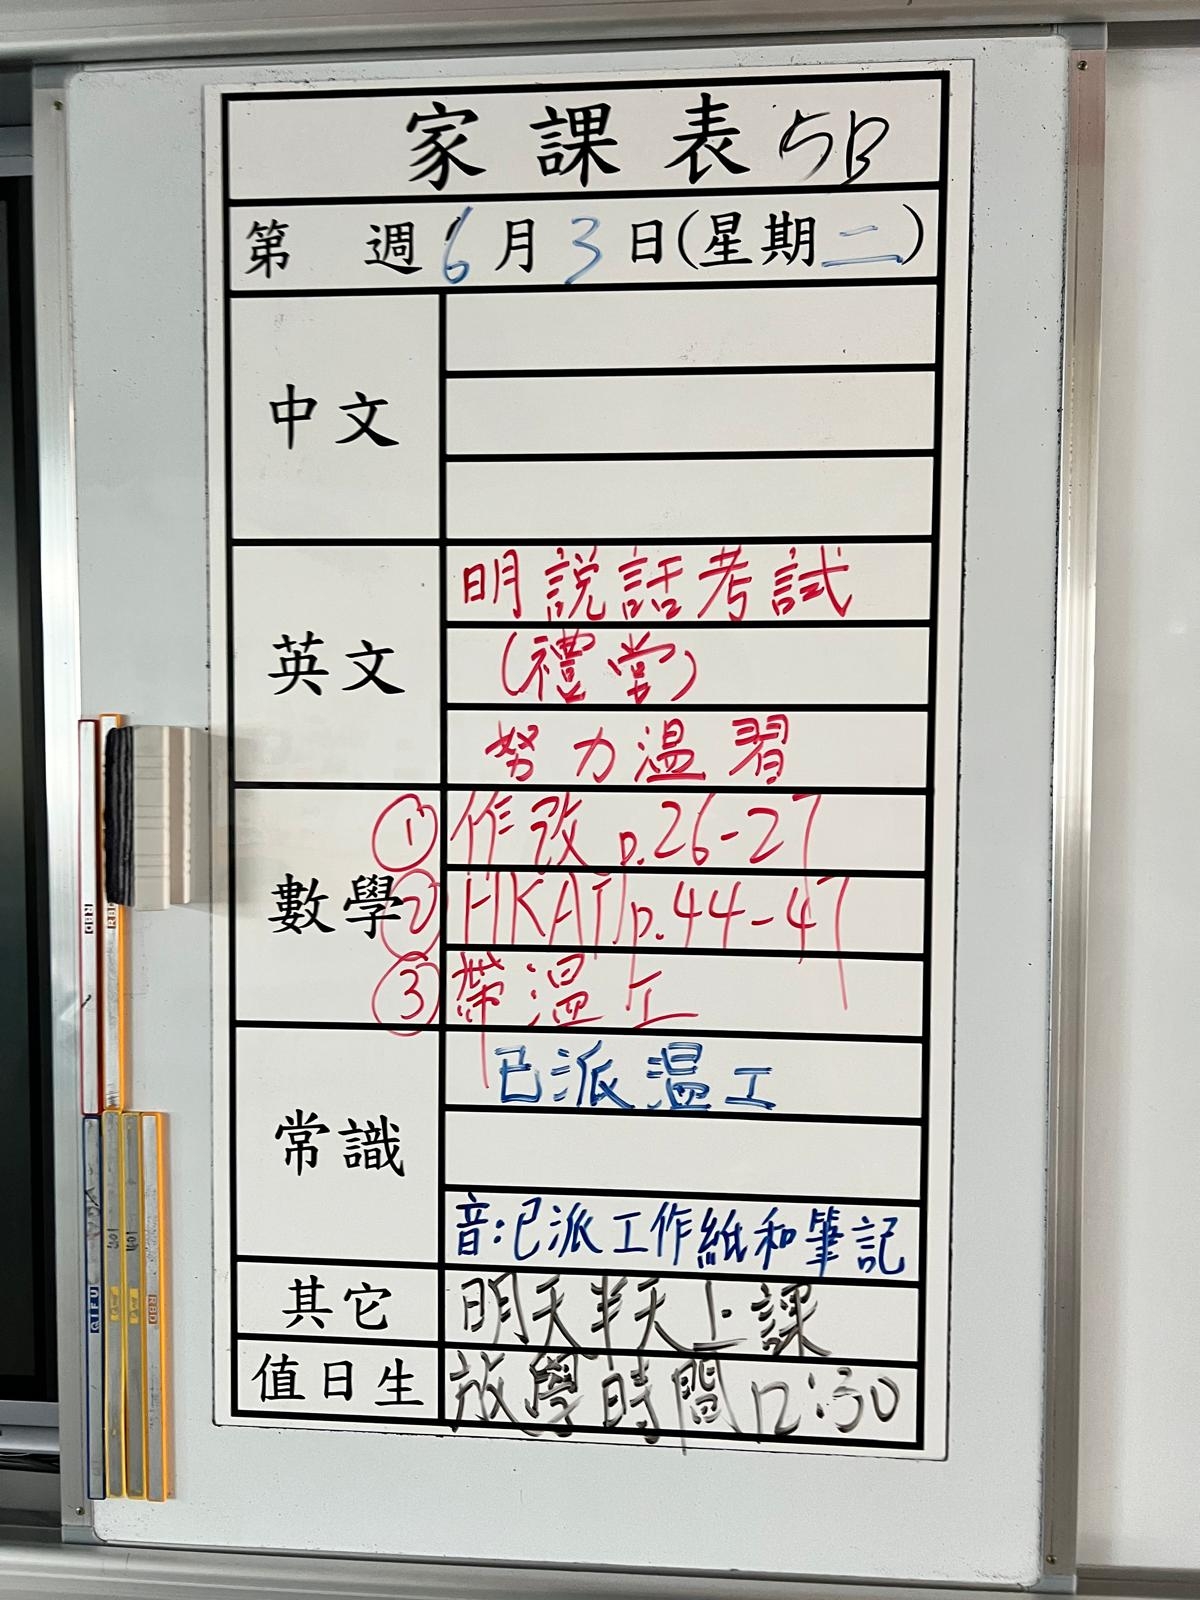 家課表 5B
第 週 6月3日(星期二)
中文
英文
明說話考試
(禮堂)
努力温習
數學
① 作改 p.26-27
② HKAT p.44-47
③ 帶温工
常識
已派温工
音:已派工作紙和筆記
其它
明天半天上課
值日生
放學時間12:30